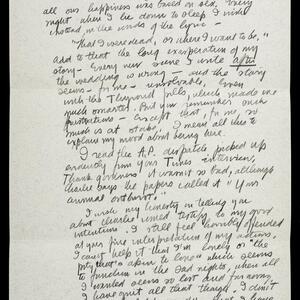 all our happiness was based on old. Every
night when I lie down to sleep I wish
instead, in the words of the lyric
"That I were dead, or where I want to be."
Add to that the long exasperation of my
story — Every new scene I write after
the wedding is wrong — and the story
seems — for me — unresolvable, even
with the Thyroid pills, which made me
much smarter. But you remember such
frustrations — except that, for me, so
much is at stake. I mean all this to
explain my mood about being here.
I read the A.P. dispatch picked up
evidently from your Times interview,
Thank goodness it wasn't so bad, although
Charlie says the papers called it "Your
annual outburst."
I wish my honesty in telling you
about Charlie would testify to my good
intentions. I still feel horribly offended
at your free interpretation of my actions,
I can't help it that I'm lonely or the
"open to love" which seems
to function in the bad nights, when all
I wanted seems so lost and far away
I have quit all that though, I don't